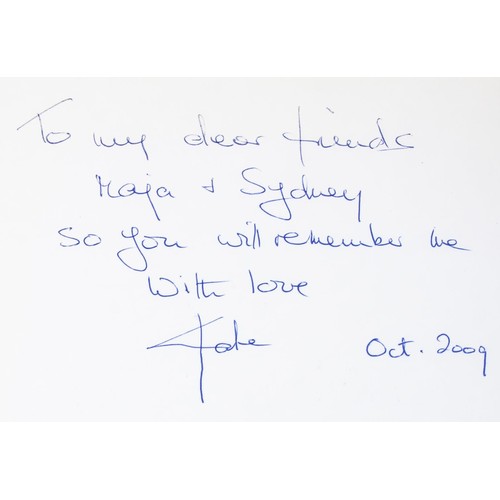 To my dear friends
Maja + Sydney
so you will remember me
With love
Oct. 2009